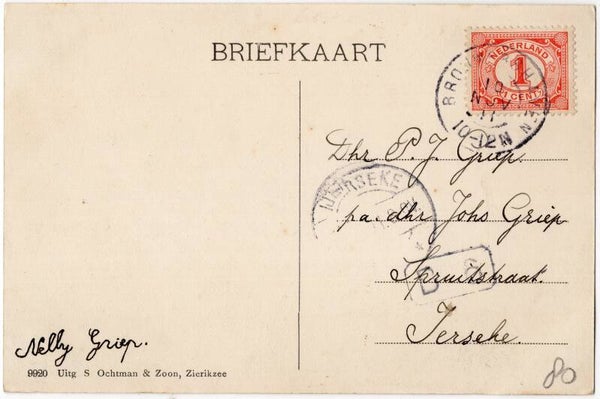 BRIEFKAART
NEDERLAND
1
1 CENT
10-12N
Dhr P. J. Griep.
IERSEKE
pa. dhr Johs Griep
Spruitstraat.
Ierseke.
Nelly Griep.
9920 Uitg S Ochtman & Zoon, Zierikzee
80